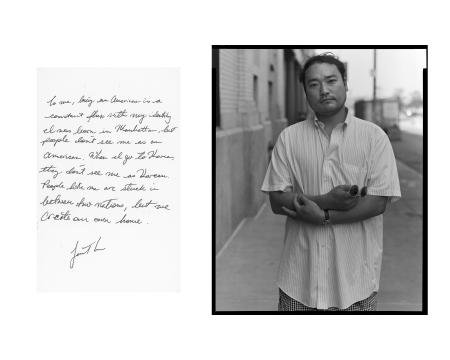 To me, being an American is a
constant flux with my identity
I was born in Manhattan, but
people don't see me as an
American. When I go to Korea,
they don't see me as Korean.
People like me are stuck in
between two nations, but we
create our own home.